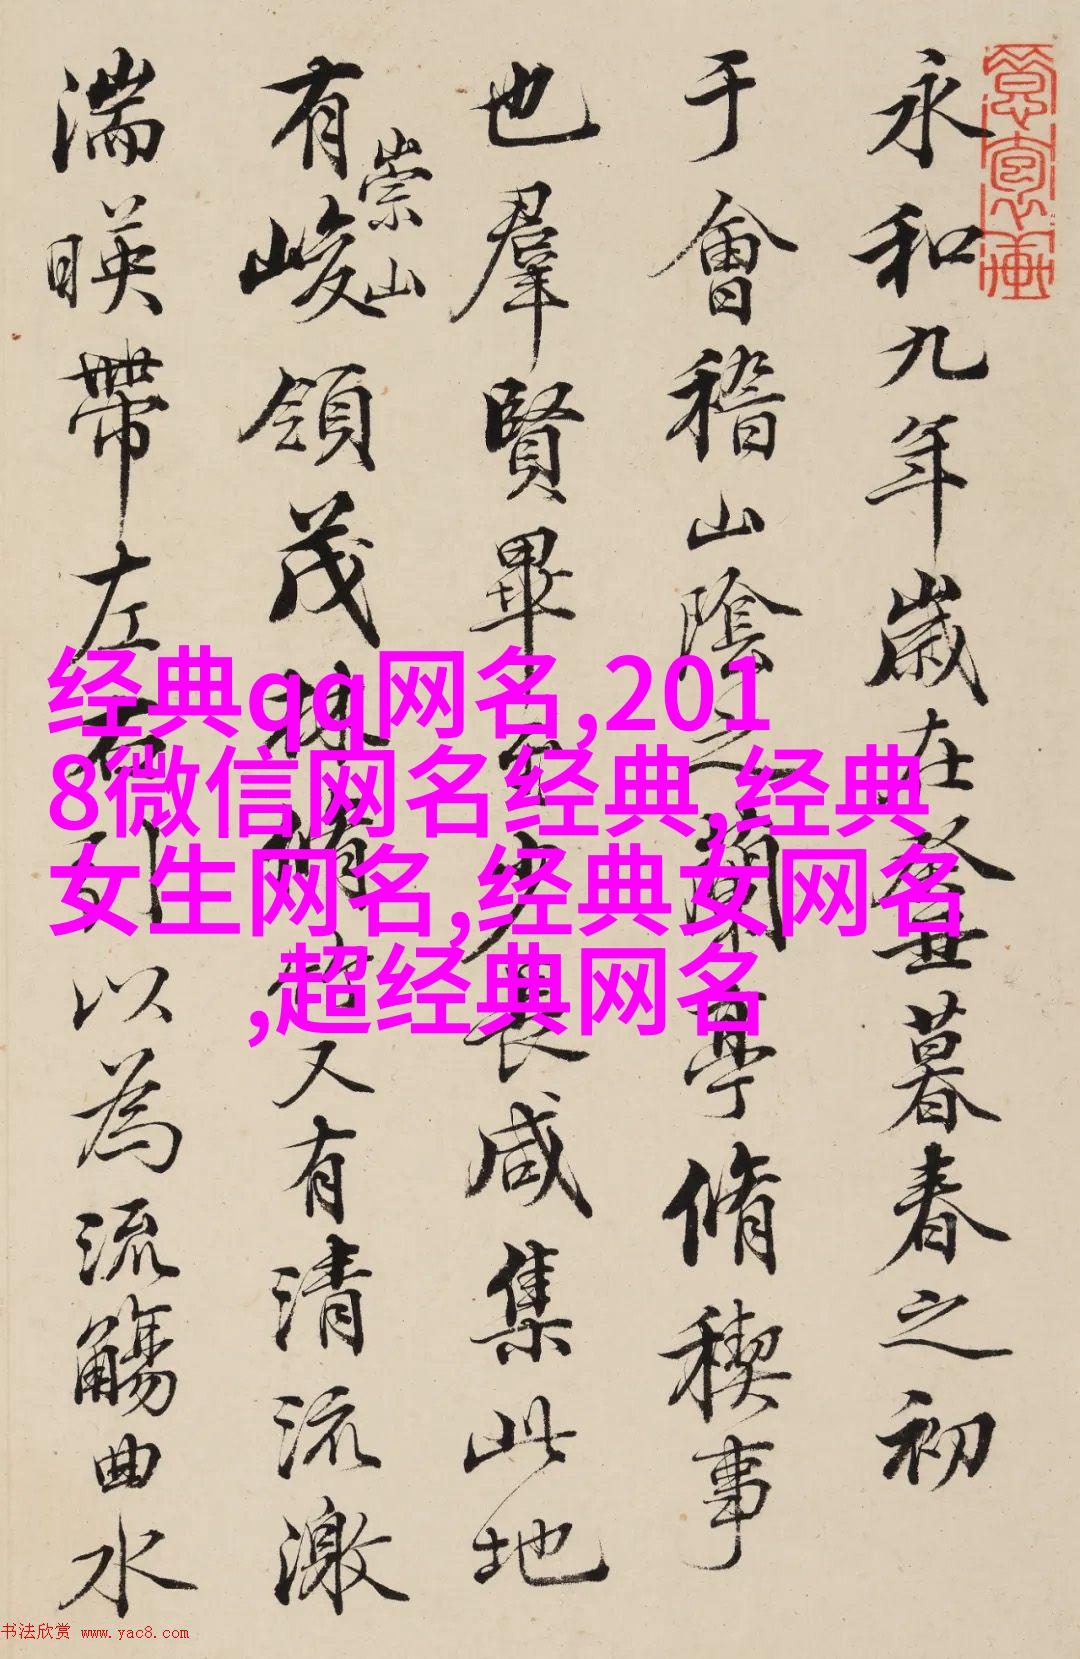 永和九年歲在癸丑暮春之初
于會稽山陰之蘭亭脩稧事
也羣賢畢至少長咸集此地
有崇山峻領茂林脩竹又有清流激
湍暎帶左右引以為流觴曲水
经典qq网名,201
8微信网名经典,经典
女生网名,经典女网名
,超经典网名
书法欣赏 www.yac8.com